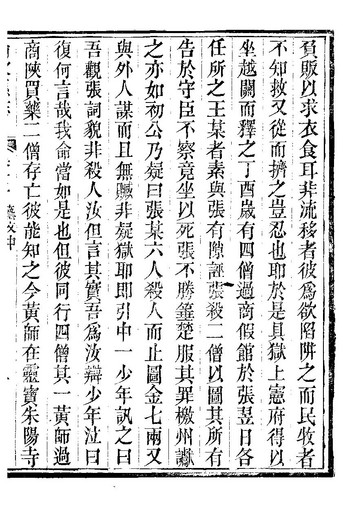 貧販以求衣食耳非流移者彼爲欲陷阱之而民牧者
不知救又從而擠之豈忍也耶於是具獄上憲府得以
坐越關而釋之丁酉歲有四僧過商假館於張翌日各
任所之王某者素與張有隙誣張殺二僧以圖其所有
告於守臣不察竟坐以死張不勝箠楚服其罪檄州讞
之亦如初公乃疑曰張某六人殺人而止圖金七兩又
與外人謀而且無贓非疑獄耶卽引中一少年訊之曰
吾觀張詞貌非殺人汝但言其實吾爲汝辯少年泣曰
復何言哉我命當如是也但彼同行四僧其一黃師過
商陝買藥二僧存亡彼能知之今黃師在靈寶朱陽寺